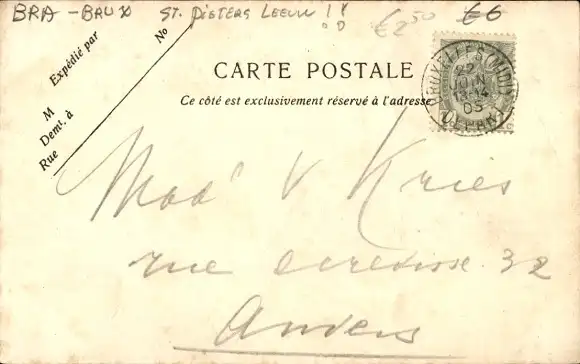 BRA - BRUX ST. PIETERS LEEUW !! €2⁵⁰ €6
Expédié par
M
Demt. à
Rue
No
CARTE POSTALE
Ce côté est exclusivement réservé à l'adresse
BRUXELLES (MIDI)
22
JUIN
05
DEPART
Mad' V Kries
rue 32
Anvers